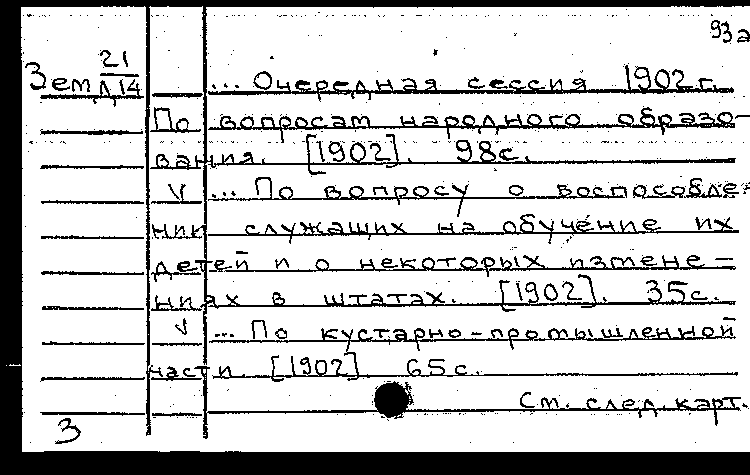 93а
Зем 21/Д14 ... Очередная сессия 1902 г.
По вопросам народного образо-
вания. [1902]. 98с.
V ... По вопросу о воспособле-
нии служащих на обучение их
детей и о некоторых измене-
ниях в штатах. [1902]. 35с.
V ... По кустарно-промышленной
части. [1902]. 65с.
См. след. карт.
3